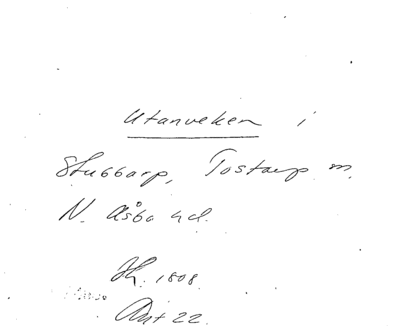 Utanveken i
Stubbarp, Tostarp m.
N. Åsbo hd.
Jh. 1808.
Akt 22.